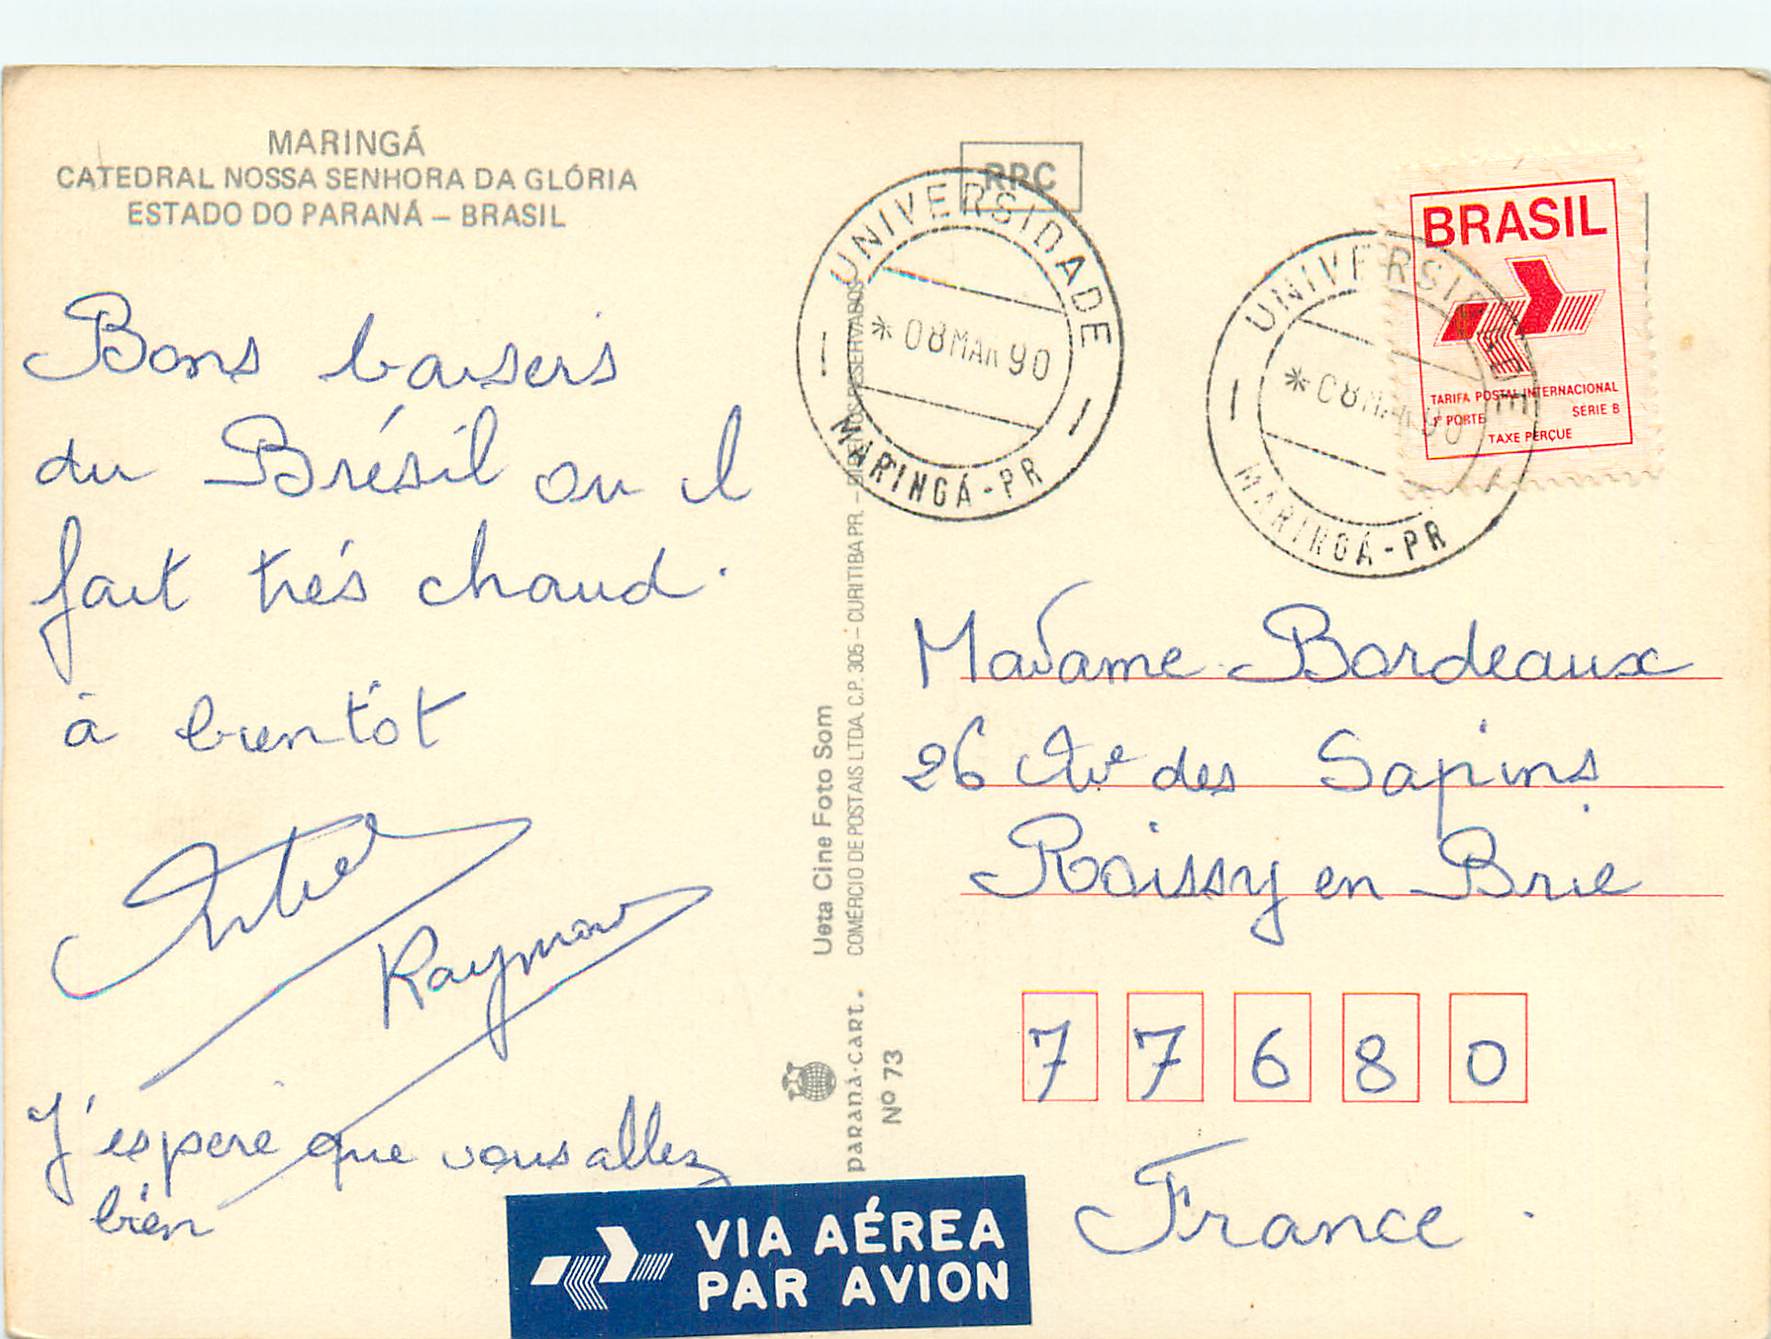 MARINGÁ
CATEDRAL NOSSA SENHORA DA GLÓRIA
ESTADO DO PARANÁ – BRASIL
Bons baisers
du Brésil ou il
fait trés chaud.
à bientôt
Raymond
J'espere que vous allez
bien
Ueta Cine Foto Som
COMÉRCIO DE POSTAIS LTDA. C.P. 305 – CURITIBA PR. – DIREITOS RESERVADOS
paraná-cart.
Nº 73
RPC
UNIVERSIDADE
* 08 MAR 90
MARINGÁ-PR
UNIVERSIDADE
* 08 MAR 90
MARINGÁ-PR
BRASIL
TARIFA POSTAL INTERNACIONAL
1º PORTE SÉRIE B
TAXE PERÇUE
Madame Bordeaux
26 Ave des Sapins
Roissy en Brie
77680
France.
VIA AÉREA
PAR AVION